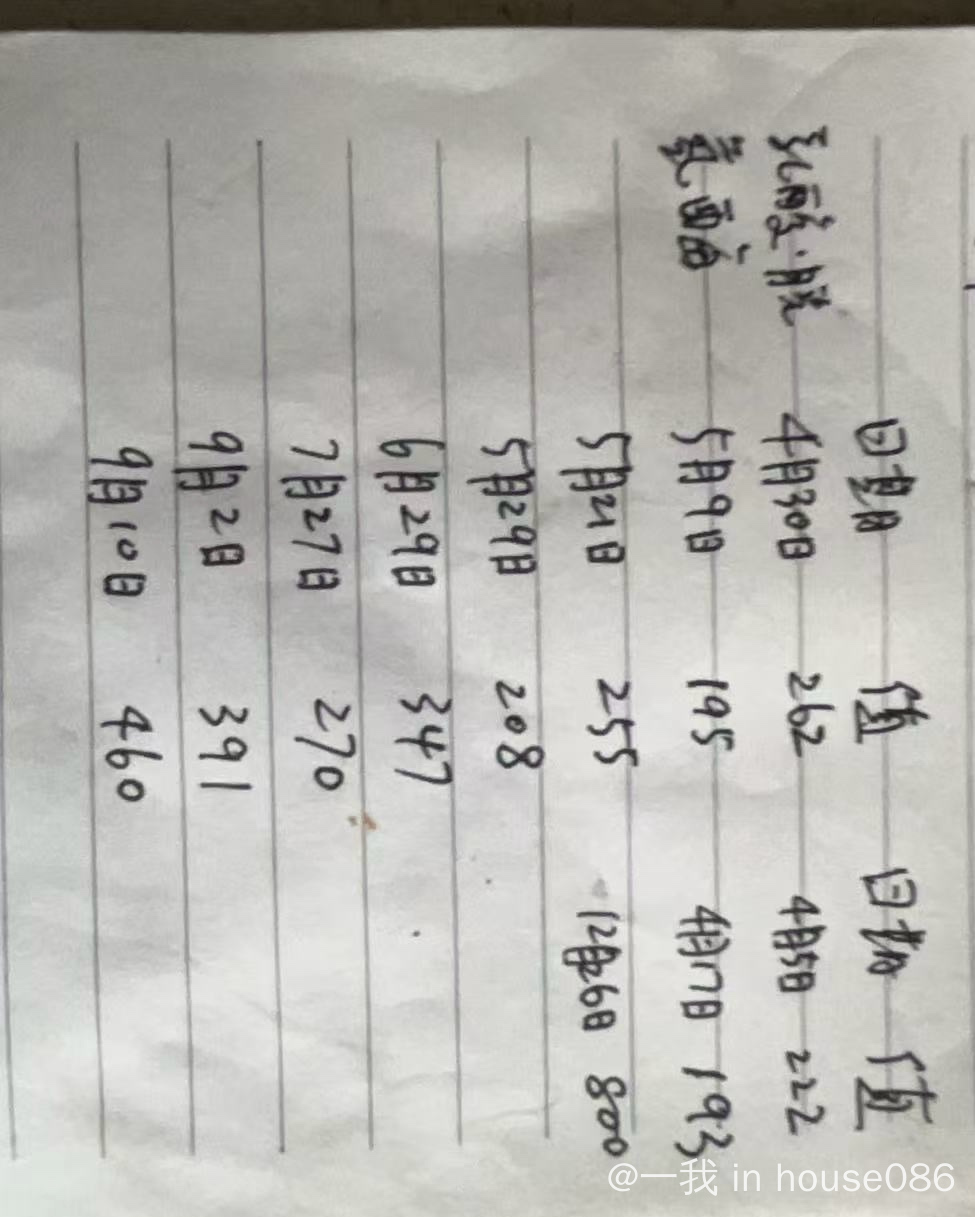 日期 值 日期 值
乳酸脱 4月30日 262 4月5日 222
氢酶 5月9日 195 4月17日 193
5月21日 255 12月26日 800
5月29日 208
6月29日 347
7月27日 270
9月2日 391
9月10日 460
@一我 in house086